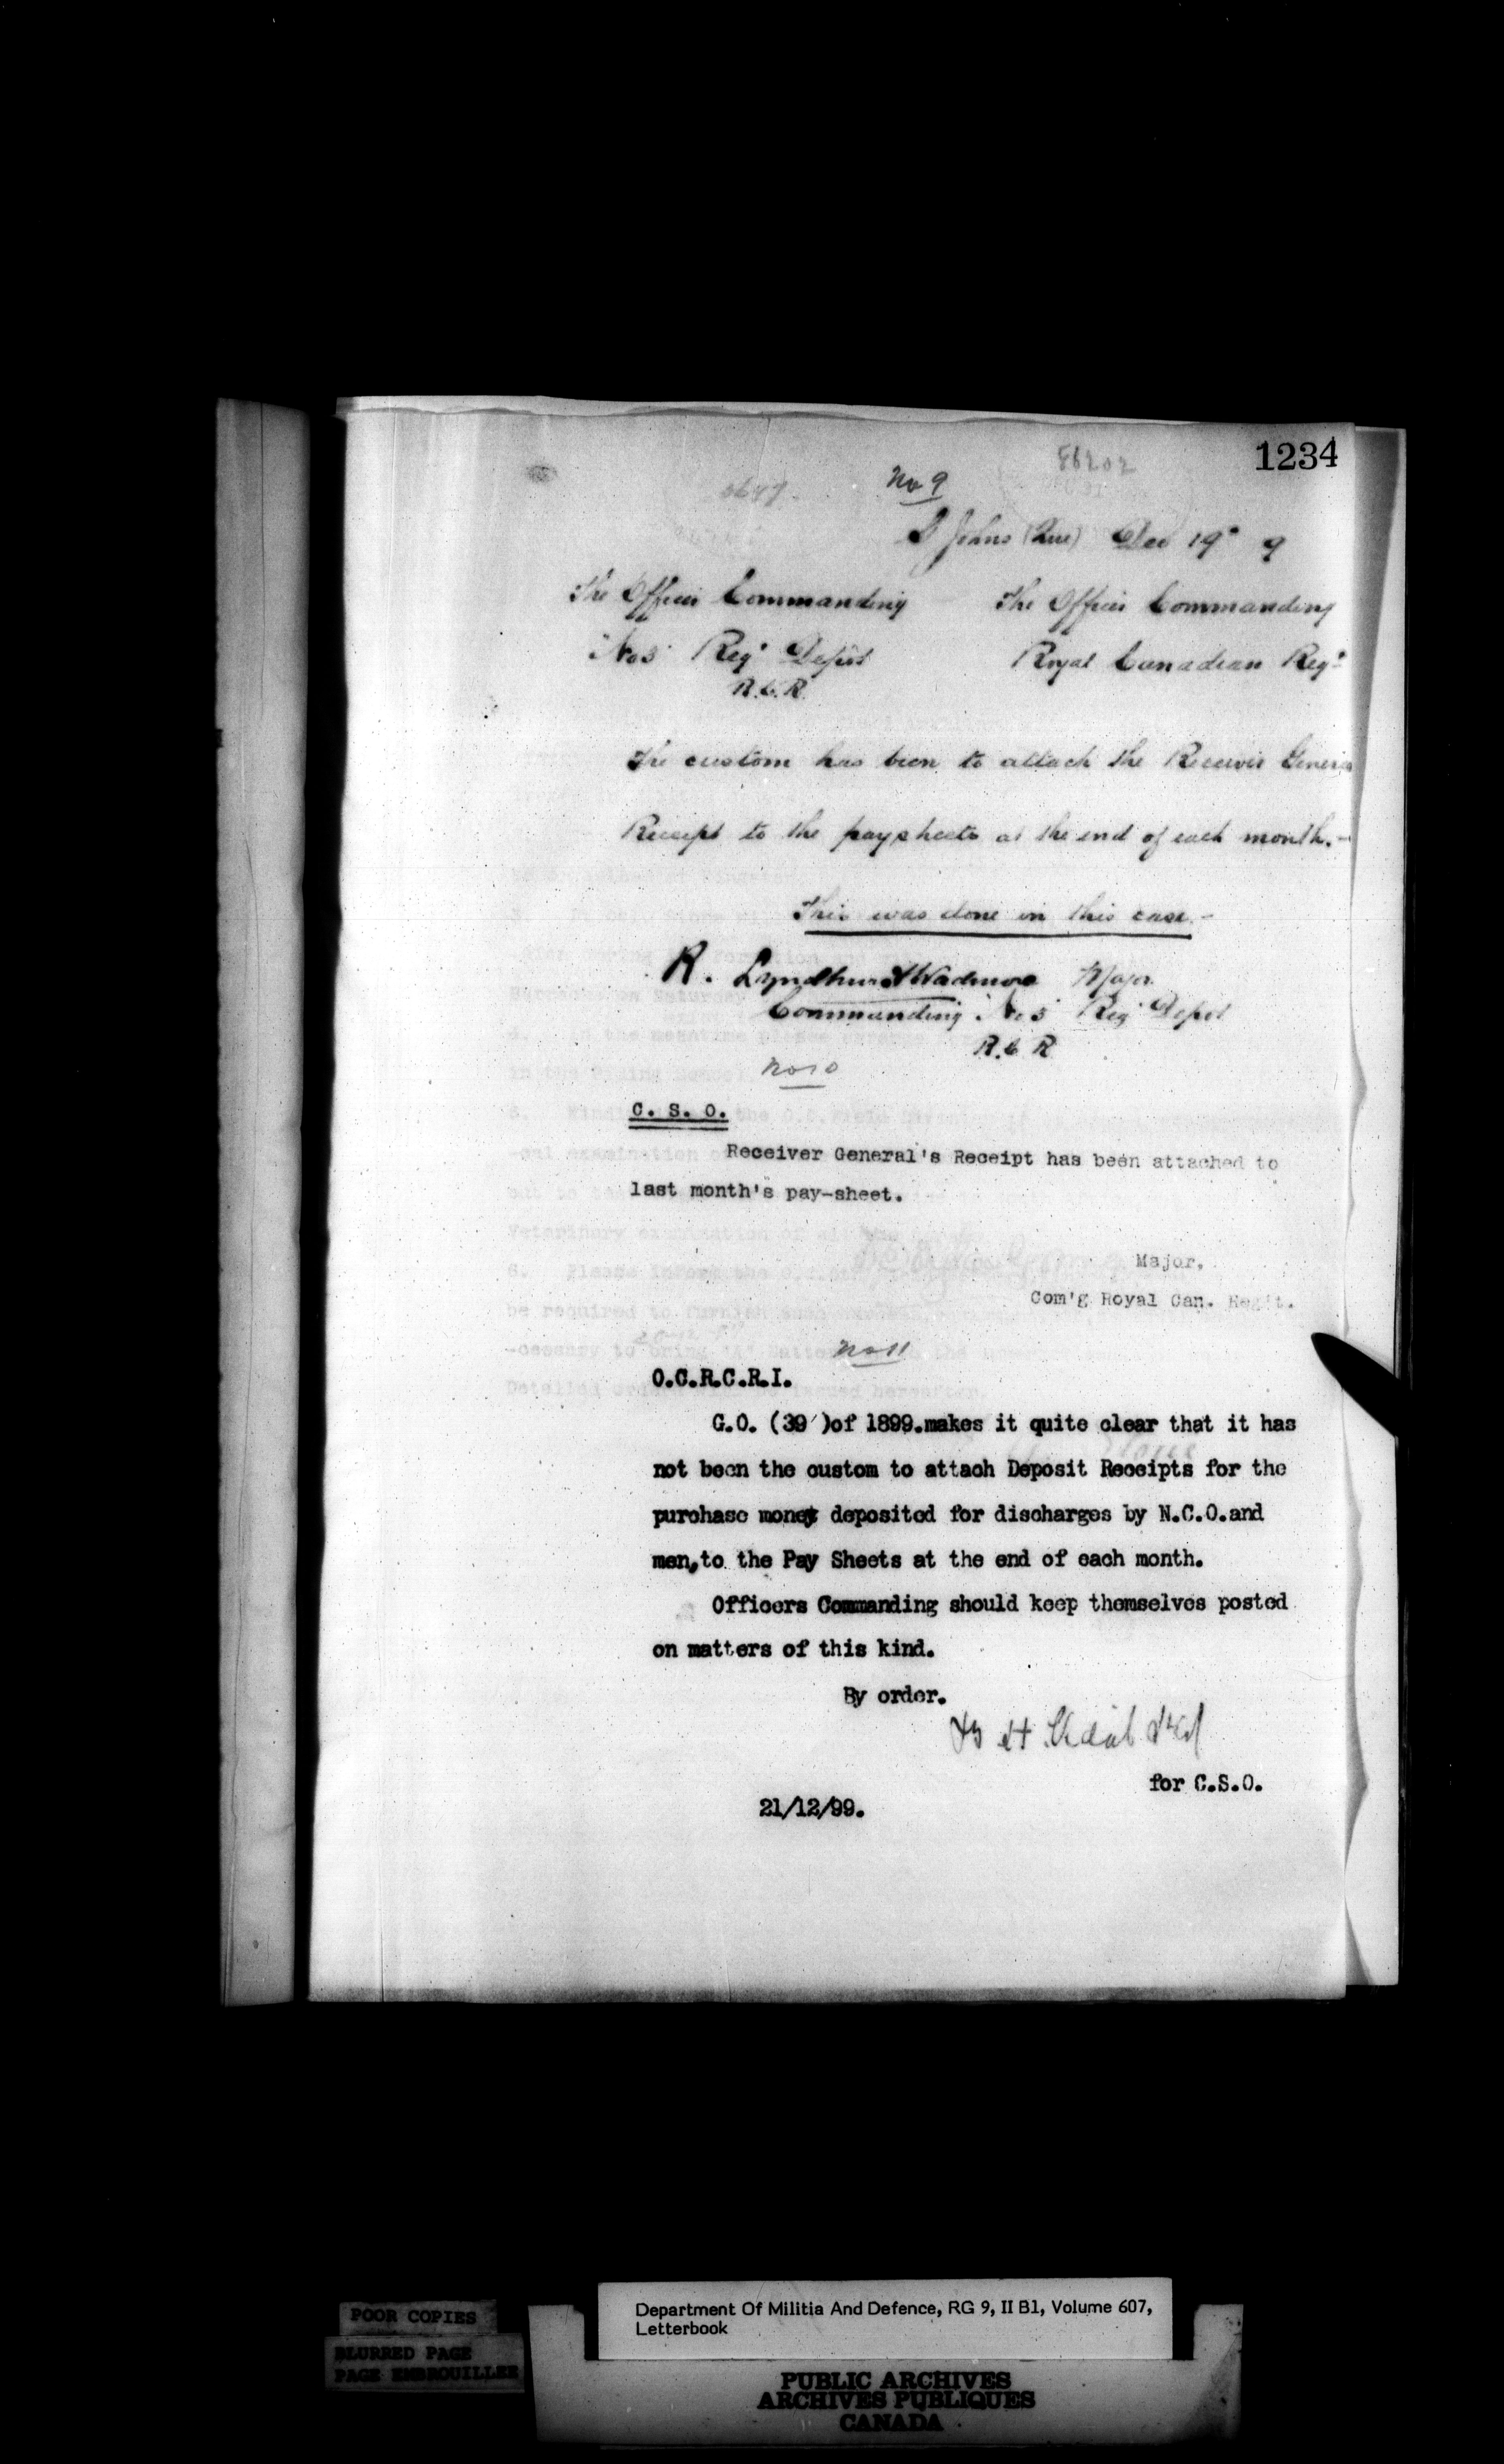 1234
86202
No 9
St Johns (Que) Dec 19° 9
The Officer Commanding The Officer Commanding
No 3 Reg' Depôt Royal Canadian Reg't
R.C.R.
The custom has been to attach the Receiver General
Receipt to the paysheets at the end of each month.-
This was done in this case.-
R. Lyndhurst Wadmore Major
Commanding No 3 Reg' Depôt
R.C.R
No 10
C. S. O.
Receiver General's Receipt has been attached to
last month's pay-sheet.
Major,
Com'g Royal Can. Regit.
No 11
O.C.R.C.R.I.
G.O. (39 )of 1899.makes it quite clear that it has
not been the custom to attach Deposit Receipts for the
purchase money deposited for discharges by N.C.O.and
men,to the Pay Sheets at the end of each month.
Officers Commanding should keep themselves posted
on matters of this kind.
By order.
for C.S.O.
21/12/99.
POOR COPIES
BLURRED PAGE
PAGE EMBROUILLEE
Department Of Militia And Defence, RG 9, II B1, Volume 607,
Letterbook
PUBLIC ARCHIVES
ARCHIVES PUBLIQUES
CANADA